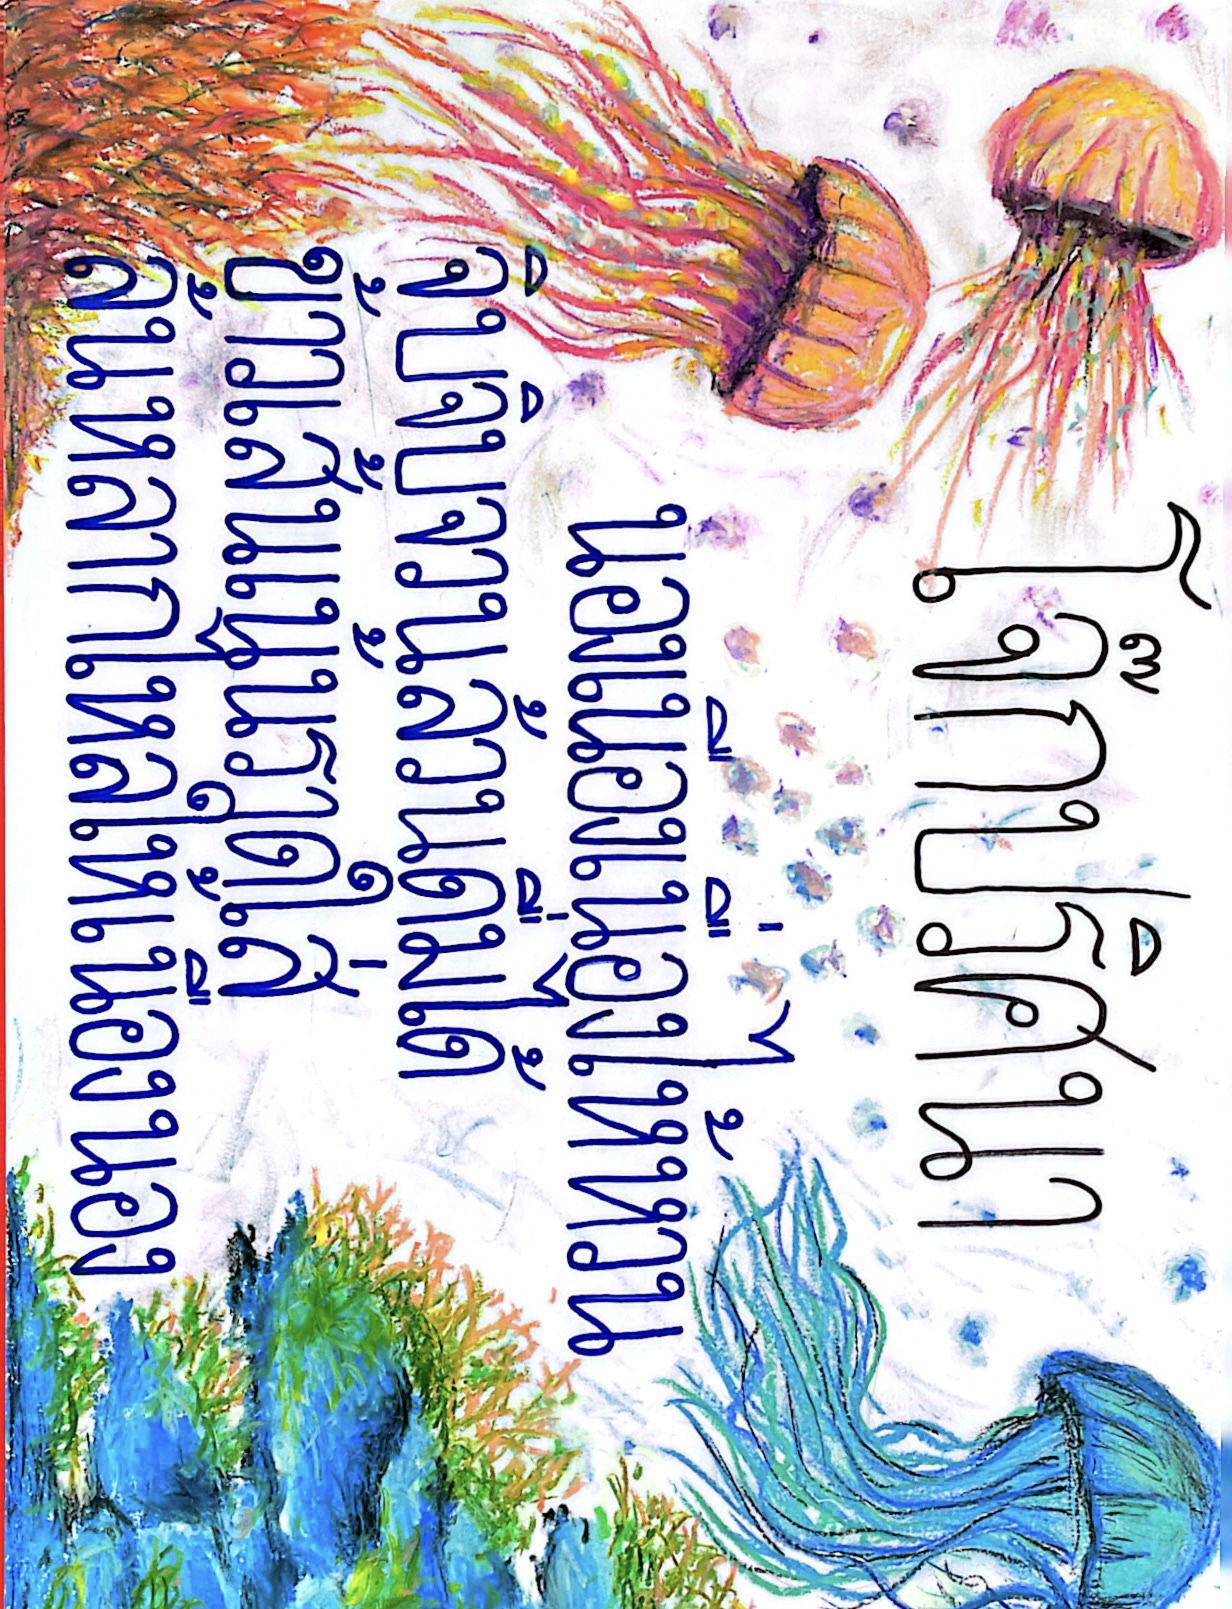 โจ๊กปริศนา
นองเนืองเนื่องไห้หวน
จิบจิบจวนล้วนดื่มได้
ข้าวเส้นเน้นราดใส่
ล้นหลากไหลให้เนืองนอง